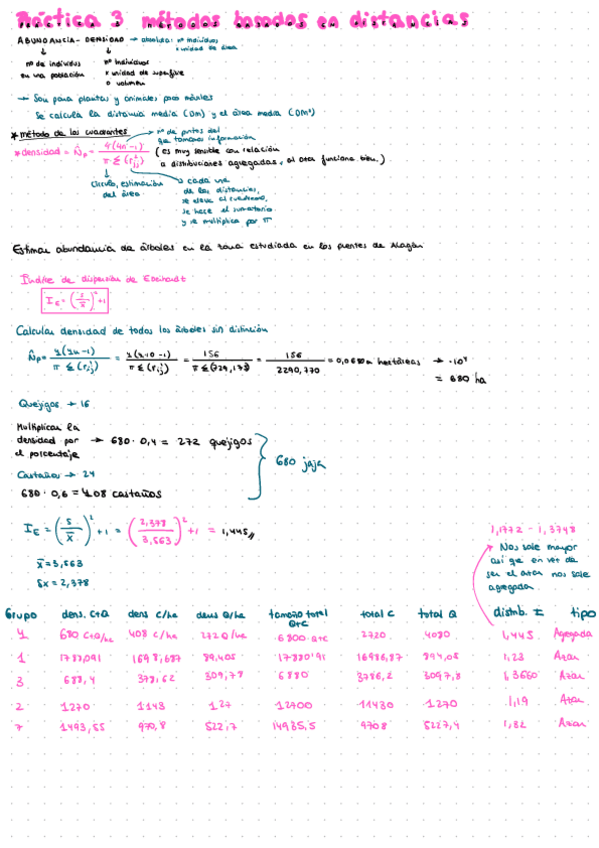 Práctica 3 métodos basados en distancias
ABUNDANCIA - DENSIDAD → absoluta: nº individuos
x unidad de área
nº de individuos en una población
nº individuos x unidad de superficie o volumen
→ Son para plantas y animales poco móviles
Se calcula la distancia media (Dm) y el área media (Dm²)
* método de los cuadrantes
→ nº de puntos del que tomamos información
* densidad = N̂p = 4(4n-1) / π Σ (rij²)
(es muy sensible con relación a distribuciones agregadas, al azar funciona bien.)
círculo, estimación del área
cada una de las distancias, se eleva al cuadrado, se hace el sumatorio y se multiplica por π
Estimar abundancia de árboles en la zona estudiada en los puentes de Alagón
Índice de dispersión de Eberhardt
I_E = (s/x̄)² + 1
Calcular densidad de todos los árboles sin distinción
N̂p = 4(4n-1) / π Σ (rij²) = 4(4·10-1) / π Σ (rij²) = 156 / = 156 / 2290,770 = hectáreas → ·10⁴
= 680 ha
Quejigos → 16
Multiplicar la densidad por el porcentaje → 680 · 0,4 = 272 quejigos
Castaños → 24
680 · 0,6 = 408 castaños
680 jaja
I_E = (s/x̄)² + 1 = (2,378/3,563)² + 1 = 1,445
x̄ = 3,563
Sx = 2,378
1,1772 - 1,3748
→ Nos sale mayor así que en vez de ser al azar nos sale agregada
Grupo dens. C+Q dens C/ha dens Q/ha tamaño total Q+C total C total Q distrib. I tipo
4 680 C+Q/ha 408 C/ha 272 Q/ha 6800 Q+C 2720 4080 1,445 Agregada
1 1698,687 89,405 16986,87 894,05 1,23 Azar
3 688,4 378,62 309,78 6880 3786,2 3097,8 1,3660 Azar
2 1270 1143 127 12700 11430 1270 1,19 Azar
7 1493,55 970,8 522,7 14935,5 9708 5227,4 1,32 Azar